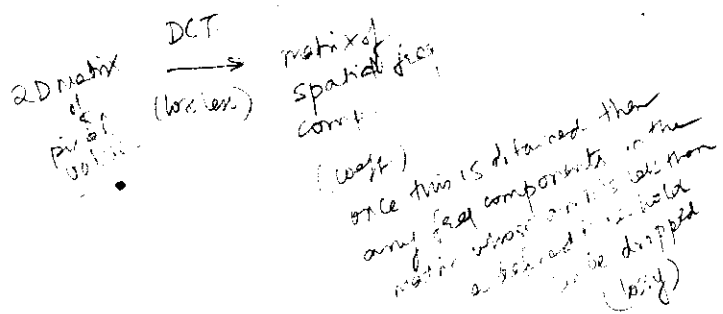 2D matrix
of
pixel
values
DCT
(lossless)
matrix of
spatial freq
comp.
(coeff)
once this is obtained then
any freq components in the
matrix whose is less than
a threshold
be dropped
(lossy)